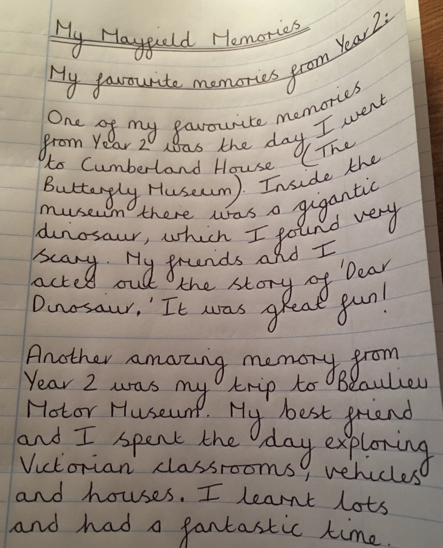 My Mayfield Memories
My favourite memories from Year 2:
One of my favourite memories
from Year 2 was the day I went
to Cumberland House (The
Butterfly Museum). Inside the
museum there was a gigantic
dinosaur, which I found very
scary. My friends and I
acted out the story of 'Dear
Dinosaur.' It was great fun!
Another amazing memory from
Year 2 was my trip to Beaulieu
Motor Museum. My best friend
and I spent the day exploring
Victorian classrooms, vehicles
and houses. I learnt lots
and had a fantastic time.